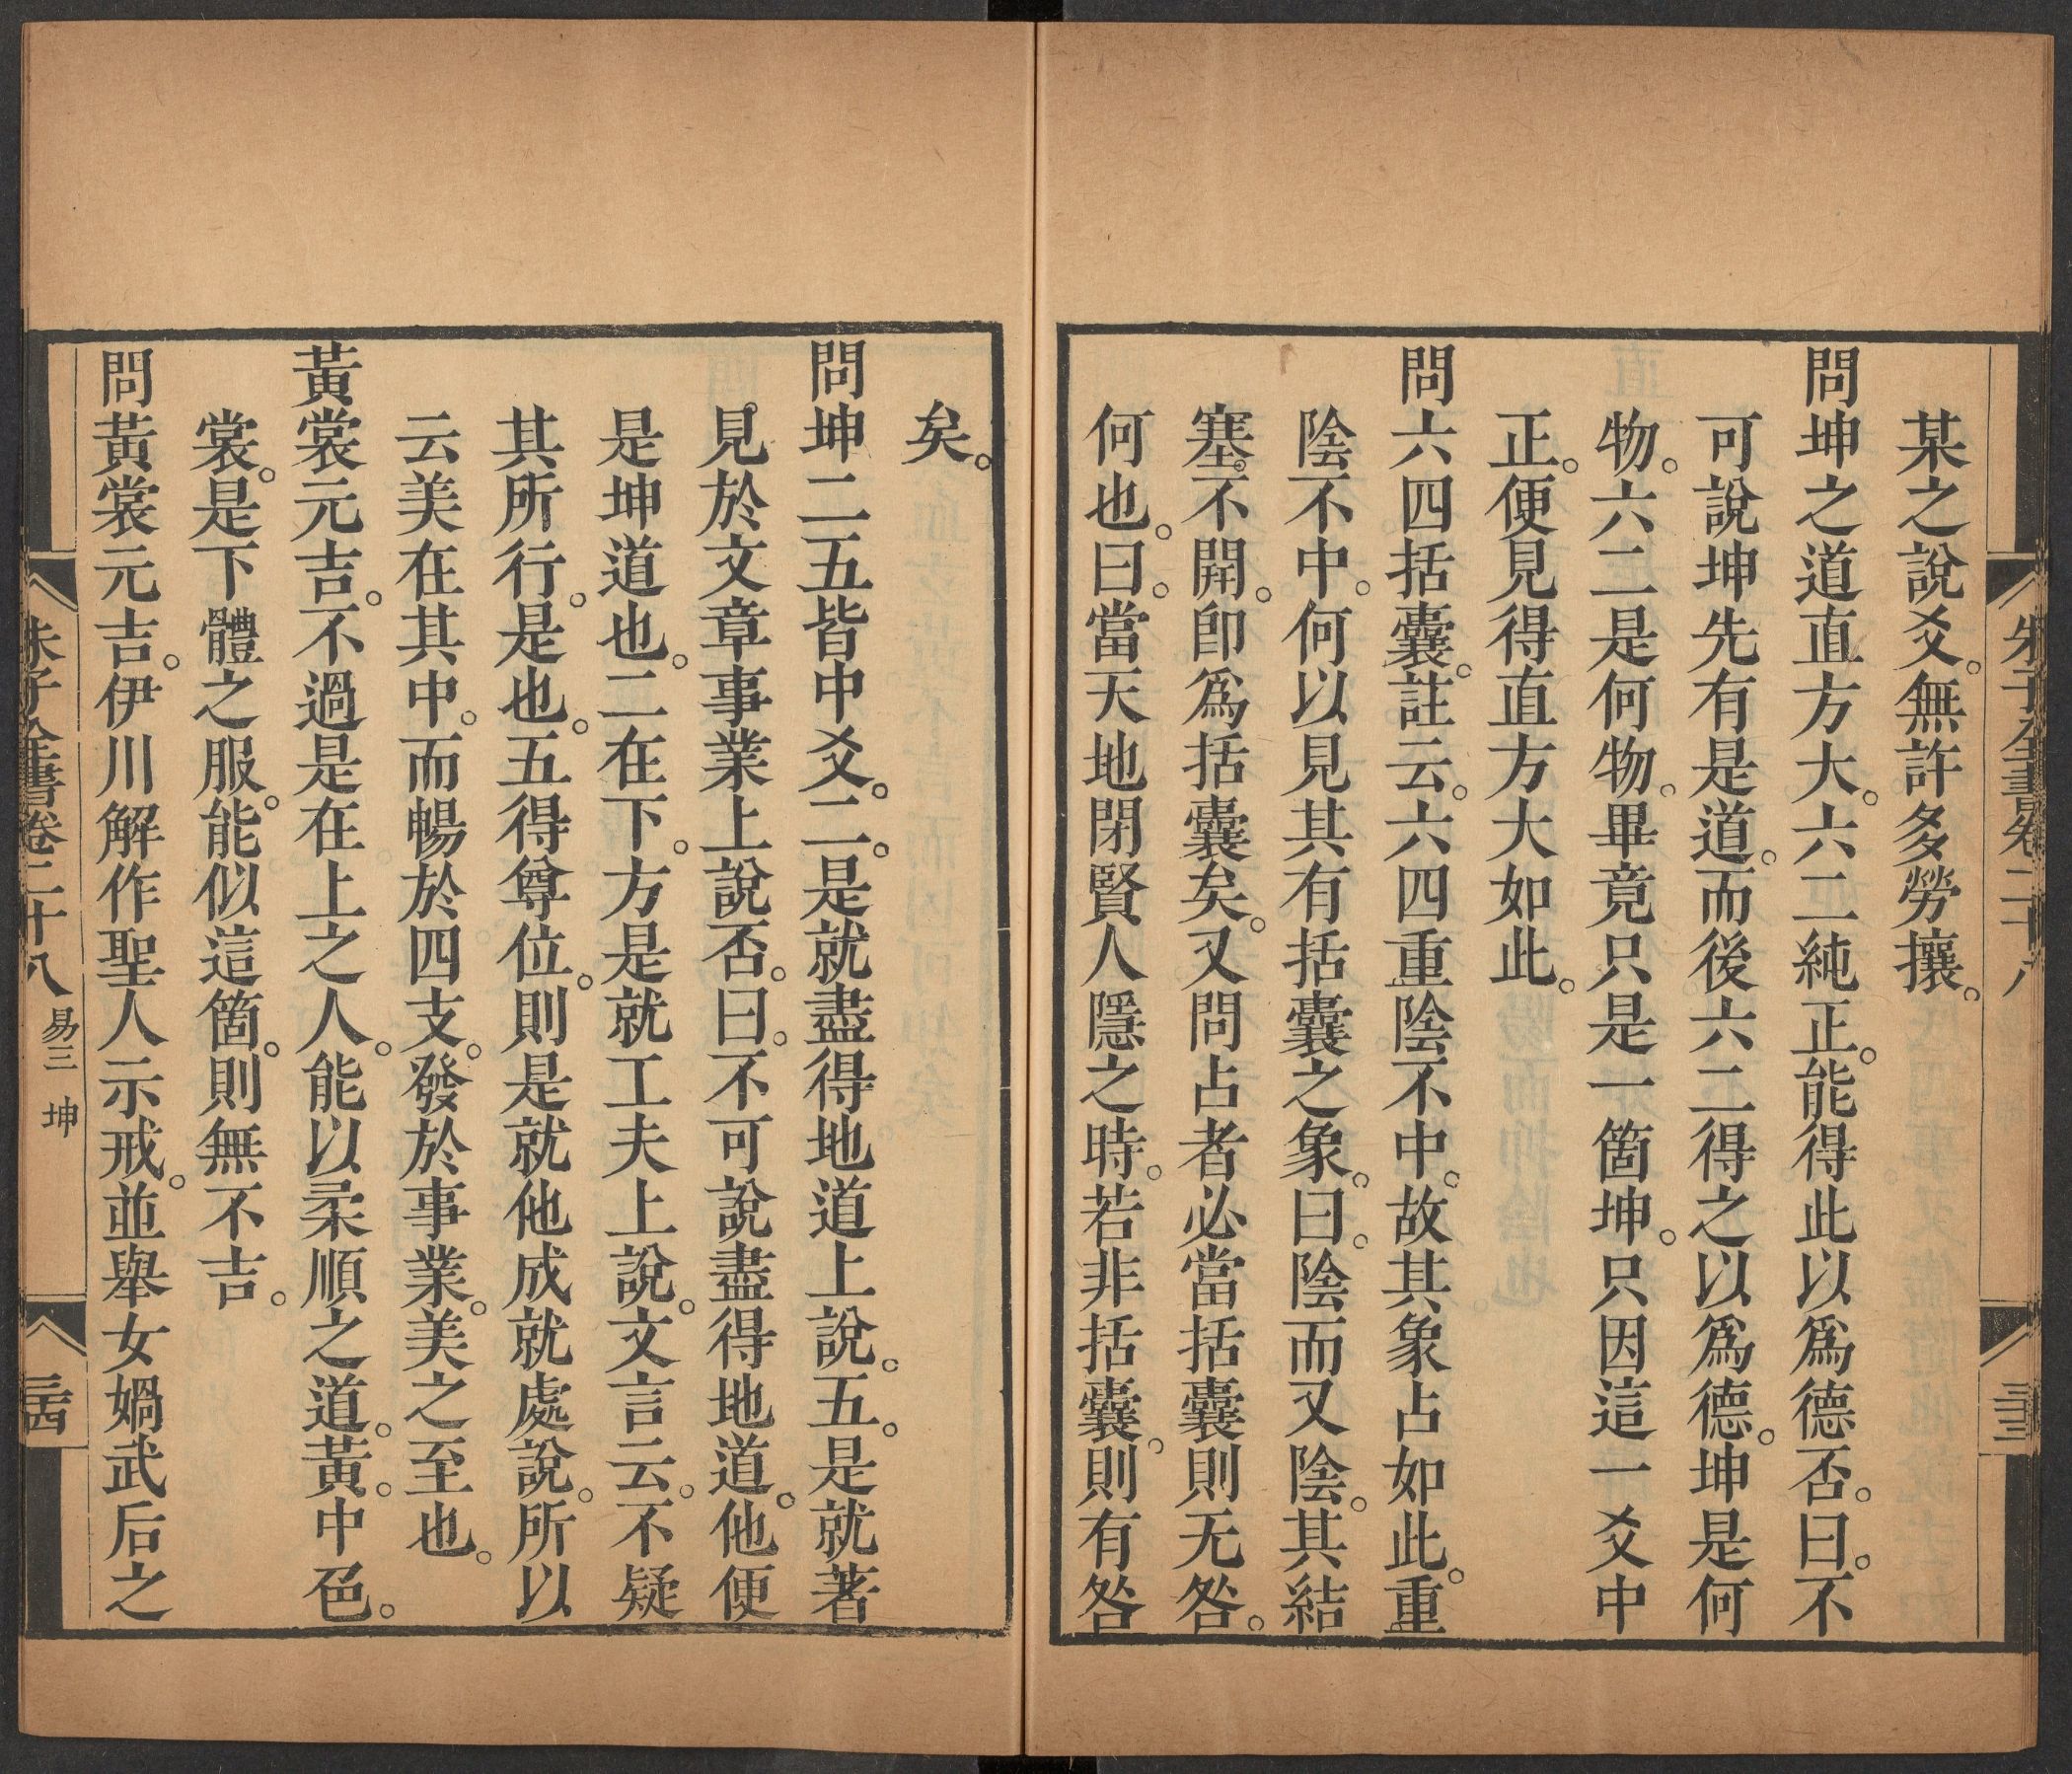 某之說爻。無許多勞攘。
問坤之道直方大。六二純正。能得此以爲德否。曰。不
可說坤先有是道。而後六二得之以爲德。坤是何
物。六二是何物。畢竟只是一箇坤。只因這一爻中
正。便見得直方大如此。
問六四括囊。註云。六四重陰不中。故其象占如此。重
陰不中。何以見其有括囊之象。曰。陰而又陰。其結
塞。不開。卽爲括囊矣。又問占者必當括囊則无咎。
何也。曰。當天地閉賢人隱之時。若非括囊。則有咎
朱子全書卷二十八
三十三
矣。
問坤二五皆中爻。二。是就盡得地道上說。五。是就著
見於文章事業上說否。曰。不可說盡得地道。他便
是坤道也。二在下。方是就工夫上說。文言云。不疑
其所行。是也。五得尊位。則是就他成就處說。所以
云美在其中。而暢於四支。發於事業。美之至也。
黃裳元吉。不過是在上之人。能以柔順之道。黃。中色。
裳。是下體之服。能似這箇。則無不吉。
問黃裳元吉。伊川解作聖人示戒。並舉女媧武后之
朱子全書卷二十八 易三 坤
三十四